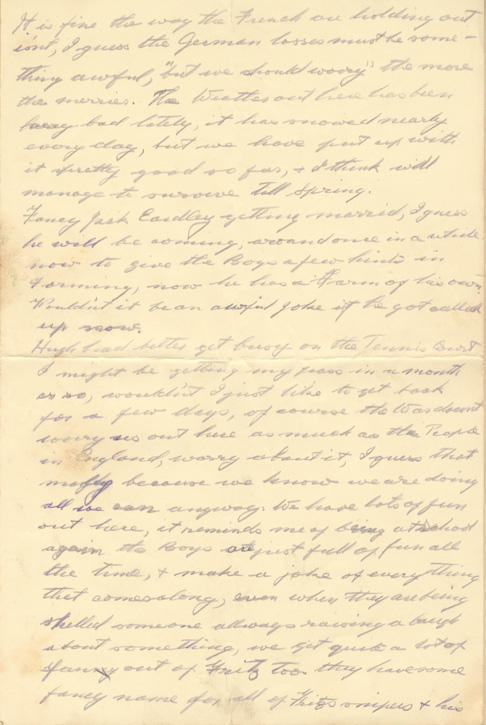 It is fine the way the French are holding out
isnt, I guess the German losses must be some-
thing awful, "but we should worry" the more
the merrier. The Weather out here has been
bad lately, it has snowed nearly
every day, but we have put up with
it pretty good so far, & I think will
manage to survive till Spring.
Fancy Jack Eardley getting married, I guess
he will be coming, around once in a while
now to give the Boys a few hints in
Farming, now he has a Farm of his own.
Wouldn't it be an awful joke if he got called
up now.
Hugh had better get busy on the Tennis Court
I might be getting my pass in a month
or so, wouldn't I just like to get back
for a few days, of course the War doesn't
worry us out here as much as the People
in England, worry about it, I guess that
because we know we are doing
all we can anyway. We have lots of fun
out here, it reminds me of being at School
again the Boys are just full of fun all
the time, & make a joke of everything
that comes along, even when they are being
shelled someone allways raising a laugh
about something, we get quite a lot of
out of Fritz too they have some
fancy name for all of Fritzs snipers & his